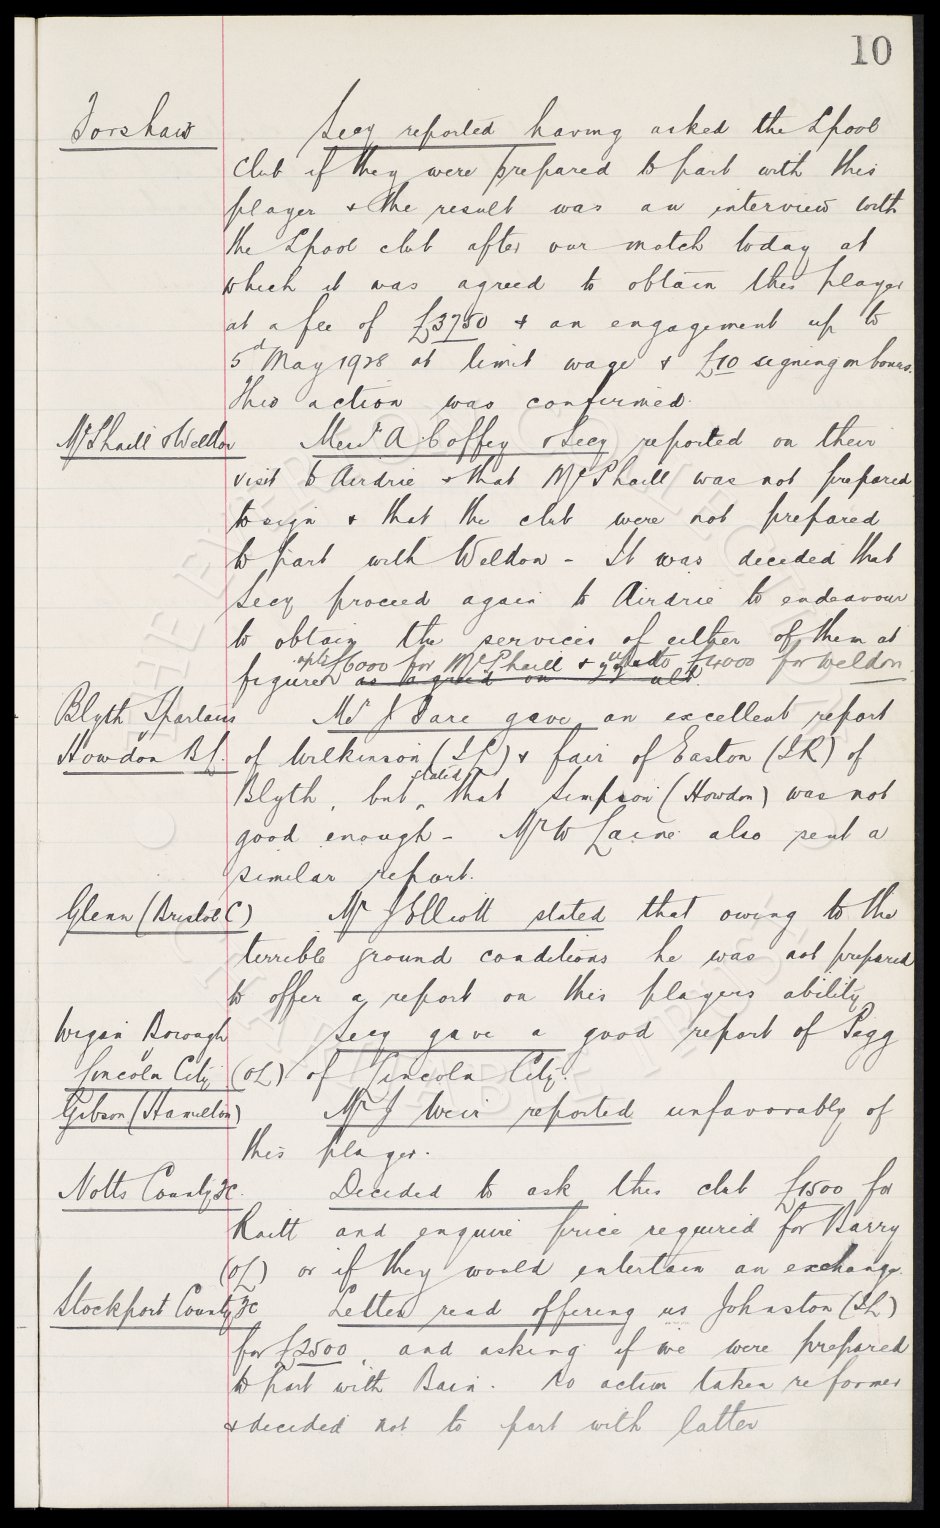 10
Forshaw
Secy reported having asked the Lpool
Club if they were prepared to part with this
player & the result was an interview with
the Lpool club after our match today at
which it was agreed to obtain this player
at a fee of £3750 & an engagement up to
5th May 1928 at limit wage & £10 signing on bonus.
This action was confirmed.
McPhaill & Weldon
Messrs A Coffey & Secy reported on their
visit to Airdrie & that McPhaill was not prepared
to sign & that the club were not prepared
to part with Weldon - It was decided that
Secy proceed again to Airdrie to endeavour
to obtain the services of either of them at
up to £6000 for McPhaill & up to £4000 for Weldon.
figures as agreed on ult.
Blyth Spartans
v
Howdon B L.
Mr J Sare gave an excellent report
of Wilkinson (IL) & fair of Easton (IR) of
Blyth, but stated that Simpson (Howdon) was not
good enough - Mr W Laine also sent a
similar report.
Glenn (Bristol C)
Mr J Elliott stated that owing to the
terrible ground conditions he was not prepared
to offer a report on this players ability
Wigan Borough
v
Lincoln City
Secy gave a good report of Pegg
(OL) of Lincoln City.
Gibson (Hamilton)
Mr J Weir reported unfavorably of
this player.
Notts County FC.
Decided to ask this club £1500 for
Raitt and enquire price required for Barry
(OL) or if they would entertain an exchange.
Stockport County FC
Letter read offering us Johnston (IL)
for £2500, and asking if we were prepared
to part with Bain. No action taken re former
& decided not to part with latter